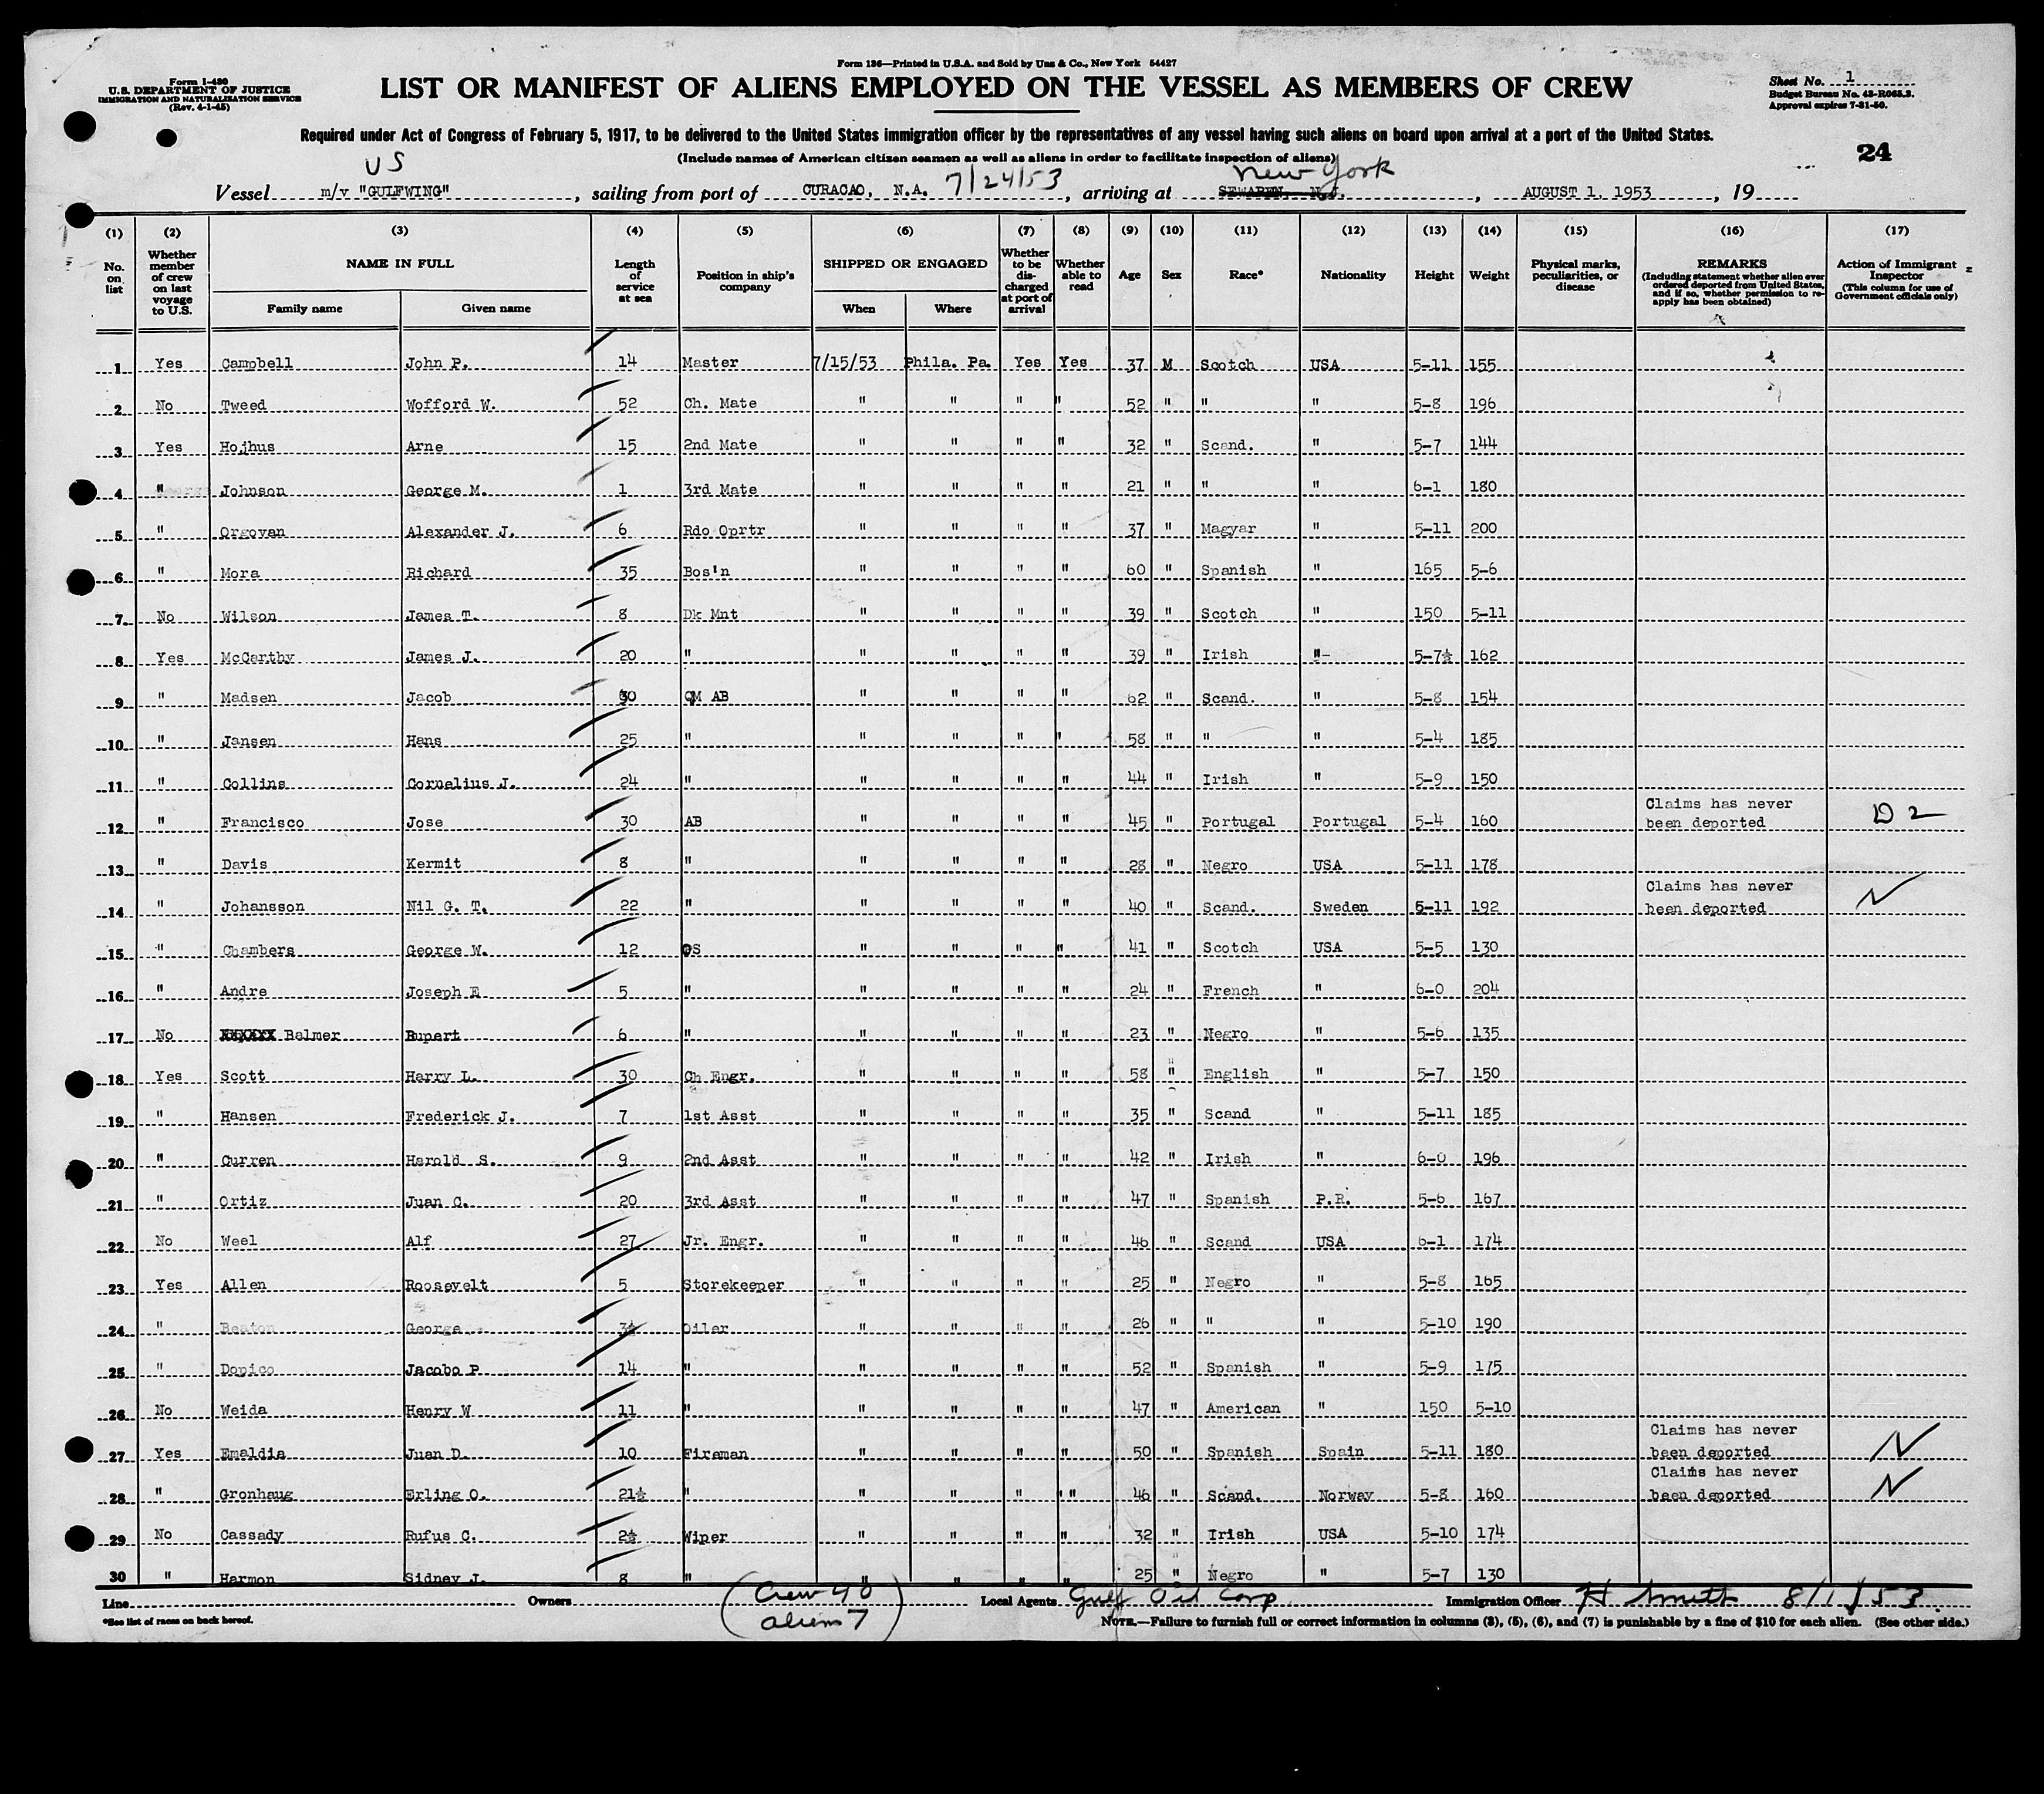 Form 136—Printed in U.S.A. and Sold by Unz & Co., New York 54427
Form I-480
U.S. DEPARTMENT OF JUSTICE
IMMIGRATION AND NATURALIZATION SERVICE
(Rev. 4-1-45)
LIST OR MANIFEST OF ALIENS EMPLOYED ON THE VESSEL AS MEMBERS OF CREW
Sheet No. 1
Budget Bureau No. 43-R065.3.
Approval expires 7-31-50.
Required under Act of Congress of February 5, 1917, to be delivered to the United States immigration officer by the representatives of any vessel having such aliens on board upon arrival at a port of the United States.
(Include names of American citizen seamen as well as aliens in order to facilitate inspection of aliens)
24
US
New York
Vessel m/v "GULFWING", sailing from port of CURACAO, N.A. 7/24/53, arriving at SEWAREN, N.J., AUGUST 1, 1953, 19
(1) (2) (3) (4) (5) (6) (7) (8) (9) (10) (11) (12) (13) (14) (15) (16) (17)
No. on list
Whether member of crew on last voyage to U.S.
NAME IN FULL
Family name
Given name
Length of service at sea
Position in ship's company
SHIPPED OR ENGAGED
When
Where
Whether to be discharged at port of arrival
Whether able to read
Age
Sex
Race*
Nationality
Height
Weight
Physical marks, peculiarities, or disease
REMARKS
(Including statement whether alien ever ordered deported from United States, and if so, whether permission to re-apply has been obtained)
Action of Immigrant Inspector
(This column for use of Government officials only)
1 Yes Campbell John P. 14 Master 7/15/53 Phila. Pa. Yes Yes 37 M Scotch USA 5-11 155
2 No Tweed Wofford W. 52 Ch. Mate " " " " 52 " " " 5-8 196
3 Yes Hojhus Arne 15 2nd Mate " " " " 32 " Scand. " 5-7 144
4 " Johnson George M. 1 3rd Mate " " " " 21 " " " 6-1 180
5 " Orgovan Alexander J. 6 Rdo Oprtr " " " " 37 " Magyar " 5-11 200
6 " Mora Richard 35 Bos'n " " " " 60 " Spanish " 165 5-6
7 No Wilson James T. 8 Dk Mnt " " " " 39 " Scotch " 150 5-11
8 Yes McCarthy James J. 20 " " " " " 39 " Irish " 5-7½ 162
9 " Madsen Jacob 30 QM AB " " " " 62 " Scand. " 5-8 154
10 " Jansen Hans 25 " " " " " 58 " " " 5-4 185
11 " Collins Cornelius J. 24 " " " " " 44 " Irish " 5-9 150
12 " Francisco Jose 30 AB " " " " 45 " Portugal Portugal 5-4 160 Claims has never been deported D 2
13 " Davis Kermit 8 " " " " " 28 " Negro USA 5-11 178
14 " Johansson Nil G. T. 22 " " " " " 40 " Scand. Sweden 5-11 192 Claims has never been deported N
15 " Chambers George W. 12 OS " " " " 41 " Scotch USA 5-5 130
16 " Andre Joseph E 5 " " " " " 24 " French " 6-0 204
17 No XXXXXX Balmer Rupert 6 " " " " " 23 " Negro " 5-6 135
18 Yes Scott Harry L. 30 Ch Engr. " " " " 58 " English " 5-7 150
19 " Hansen Frederick J. 7 1st Asst " " " " 35 " Scand " 5-11 185
20 " Curren Harold S. 9 2nd Asst " " " " 42 " Irish " 6-0 196
21 " Ortiz Juan C. 20 3rd Asst " " " " 47 " Spanish P.R. 5-6 167
22 No Weel Alf 27 Jr. Engr. " " " " 46 " Scand USA 6-1 174
23 Yes Allen Roosevelt 5 Storekeeper " " " " 25 " Negro " 5-8 165
24 " Beaton George 3½ Oiler " " " " 26 " " " 5-10 190
25 " Dopico Jacobo P 14 " " " " " 52 " Spanish " 5-9 175
26 No Weida Henry W 11 " " " " " 47 " American " 150 5-10
27 Yes Emaldia Juan D. 10 Fireman " " " " 50 " Spanish Spain 5-11 180 Claims has never been deported N
28 " Gronhaug Erling O. 21½ " " " " " 46 " Scand. Norway 5-8 160 Claims has never been deported N
29 No Cassady Rufus C. 2½ Wiper " " " " 32 " Irish USA 5-10 174
30 " Harmon Sidney J. 8 " " " " " 25 " Negro " 5-7 130
Line Owners (Crew 40 Local Agents Gulf Oil Corp Immigration Officer H Smith 8/1/53
aliens 7)
*See list of races on back hereof.
NOTE.—Failure to furnish full or correct information in columns (3), (5), (6), and (7) is punishable by a fine of $10 for each alien. (See other side.)